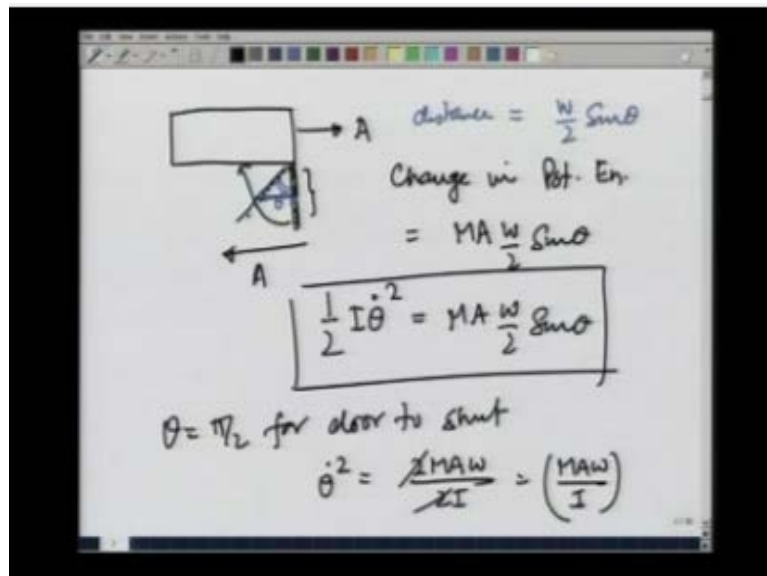 distance = W/2 Sinθ
A
Change in Pot. En.
θ
= MA W/2 Sinθ
A
1/2 Iθ̇² = MA W/2 Sinθ
θ = π/2 for door to shut
θ̇² = 2MAW/2I = (MAW/I)